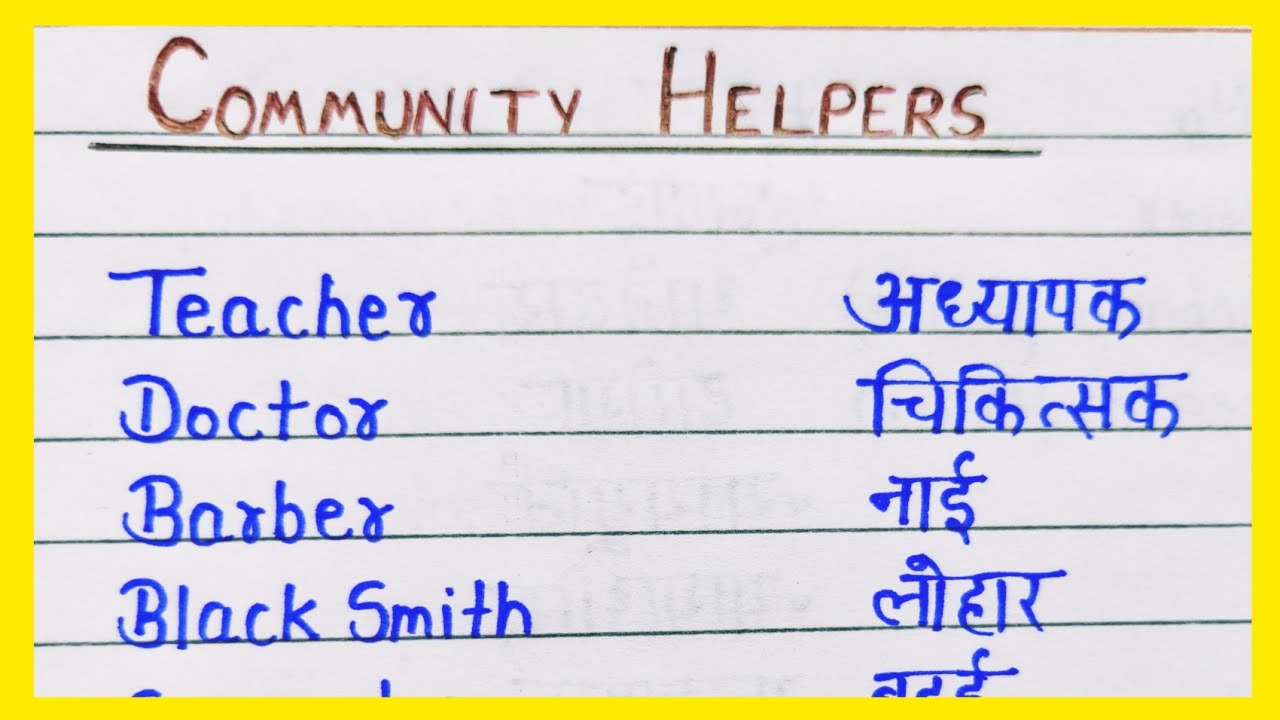 COMMUNITY HELPERS
Teacher अध्यापक
Doctor चिकित्सक
Barber नाई
Black Smith लोहार